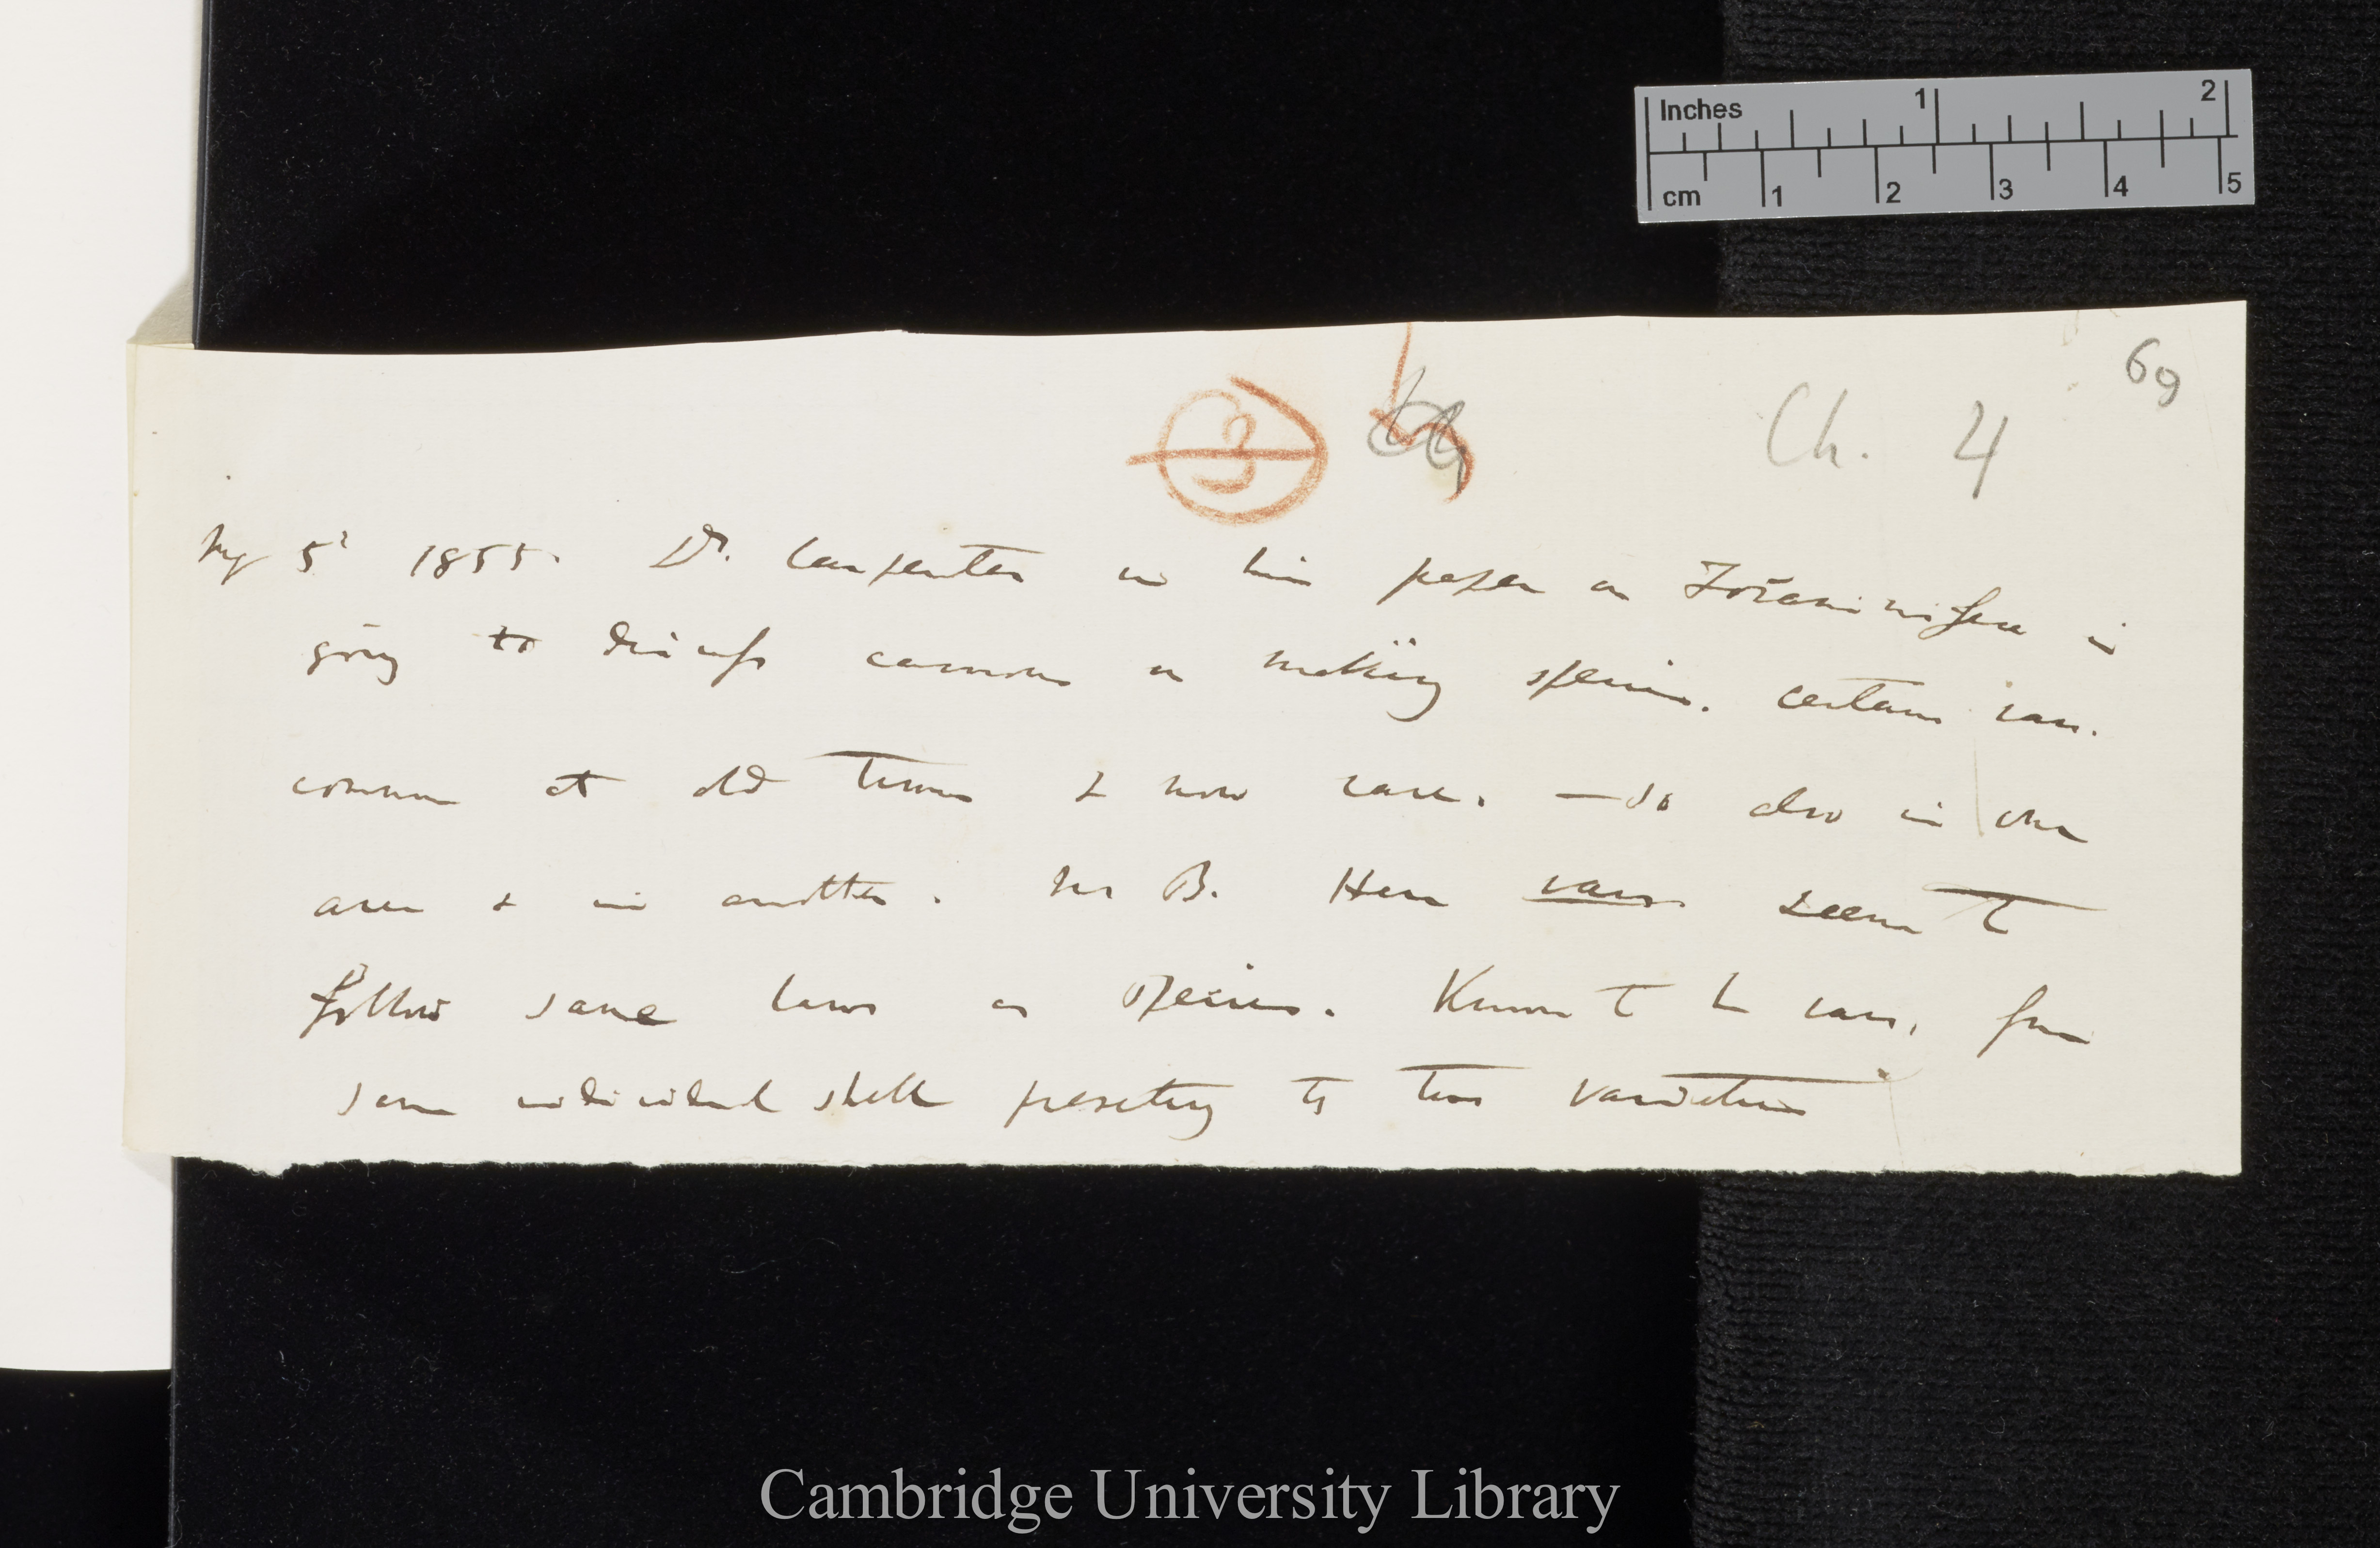 Inches 1 2
cm 1 2 3 4 5
69
3 Ch. 4
5' 1855. Dr. Carpenter in his paper on Foraminifera is
going to discuss on making species. certain vars.
common at old times & now rare. — so also in one
area & in another. N B. Here vars. seem to
follow same laws as species. Known to be vars. from
same individual shell presenting to two varieties
Cambridge University Library